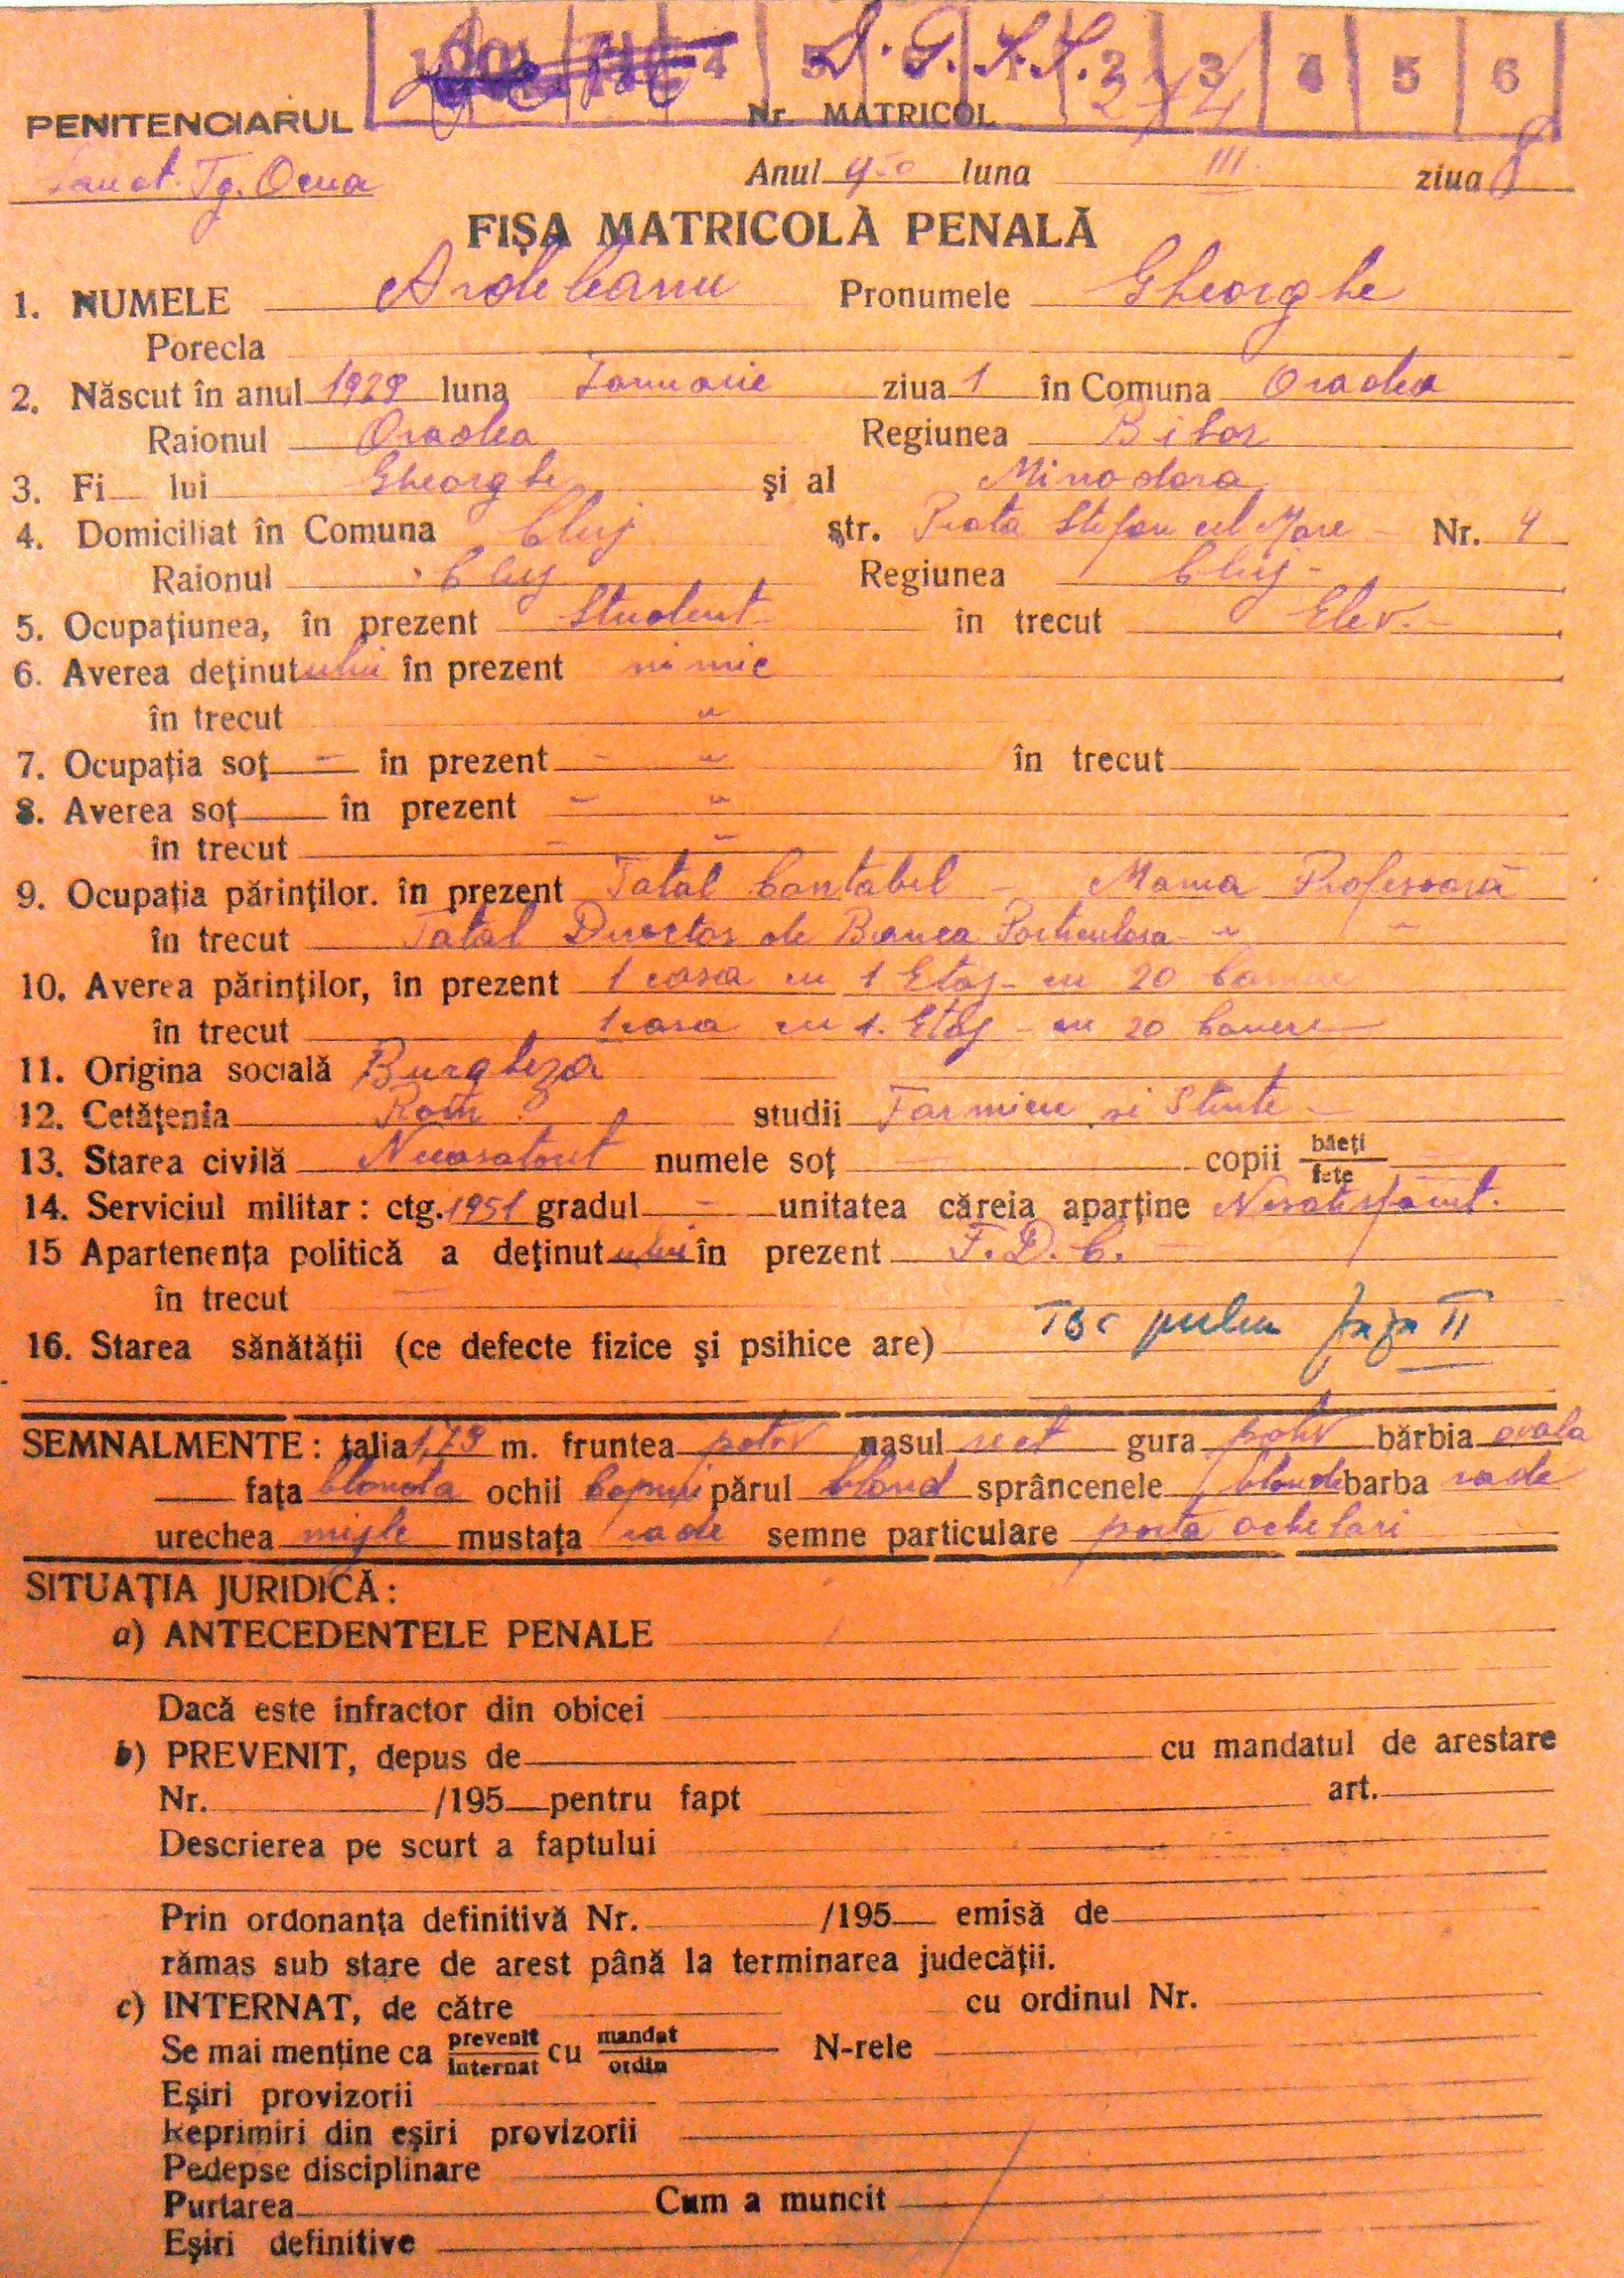 1 4 5 6 1 2 3 4 5 6
D. G. S. S.
PENITENCIARUL Nr. MATRICOL 274
Sanat. Tg. Ocna Anul 950 luna III ziua 8
FIȘA MATRICOLĂ PENALĂ
1. NUMELE Ardeleanu Pronumele Gheorghe
Porecla
2. Născut în anul 1929 luna Ianuarie ziua 1 în Comuna Oradea
Raionul Oradea Regiunea Bihor
3. Fi lui Gheorghe și al Minodora
4. Domiciliat în Comuna Cluj str. Piata Stefan cel Mare - Nr. 4
Raionul Cluj Regiunea Cluj -
5. Ocupațiunea, în prezent Student în trecut Elev. -
6. Averea deținutului în prezent nimic
în trecut "
7. Ocupația soț - în prezent - " în trecut
8. Averea soț în prezent - "
în trecut - -
9. Ocupația părinților. în prezent Tatal Contabil - Mama Profesoară
în trecut Tatal Director de Banca Particulara - " -
10. Averea părinților, în prezent 1 casa cu 1 Etaj - cu 20 Camere
în trecut 1 casa cu 1. Etaj - cu 20 Camere
11. Origina socială Burgheza
12. Cetățenia Rom. studii Farmacie si Stiinte -
13. Starea civilă Necasatorit numele soț copii băeți
fete
14. Serviciul militar : ctg. 1951 gradul - unitatea căreia aparține Nesatisfacut.
15 Apartenența politică a deținutului în prezent F. D. C. -
în trecut -
16. Starea sănătății (ce defecte fizice și psihice are) TBC pulm faza II
SEMNALMENTE : talia 1,73 m. fruntea potriv nasul rect gura potriv bărbia ovala
fața blonda ochii Caprui părul blond sprâncenele blonde barba rade
urechea mijle mustața rade semne particulare porta ochelari
SITUAȚIA JURIDICĂ :
a) ANTECEDENTELE PENALE
Dacă este infractor din obicei
b) PREVENIT, depus de cu mandatul de arestare
Nr. /195 pentru fapt art.
Descrierea pe scurt a faptului
Prin ordonanța definitivă Nr. /195 emisă de
rămas sub stare de arest până la terminarea judecății.
c) INTERNAT, de către cu ordinul Nr.
Se mai menține ca prevenit cu mandat N-rele
internat ordin
Eșiri provizorii
Reprimiri din eșiri provizorii
Pedepse disciplinare
Purtarea Cum a muncit
Eșiri definitive